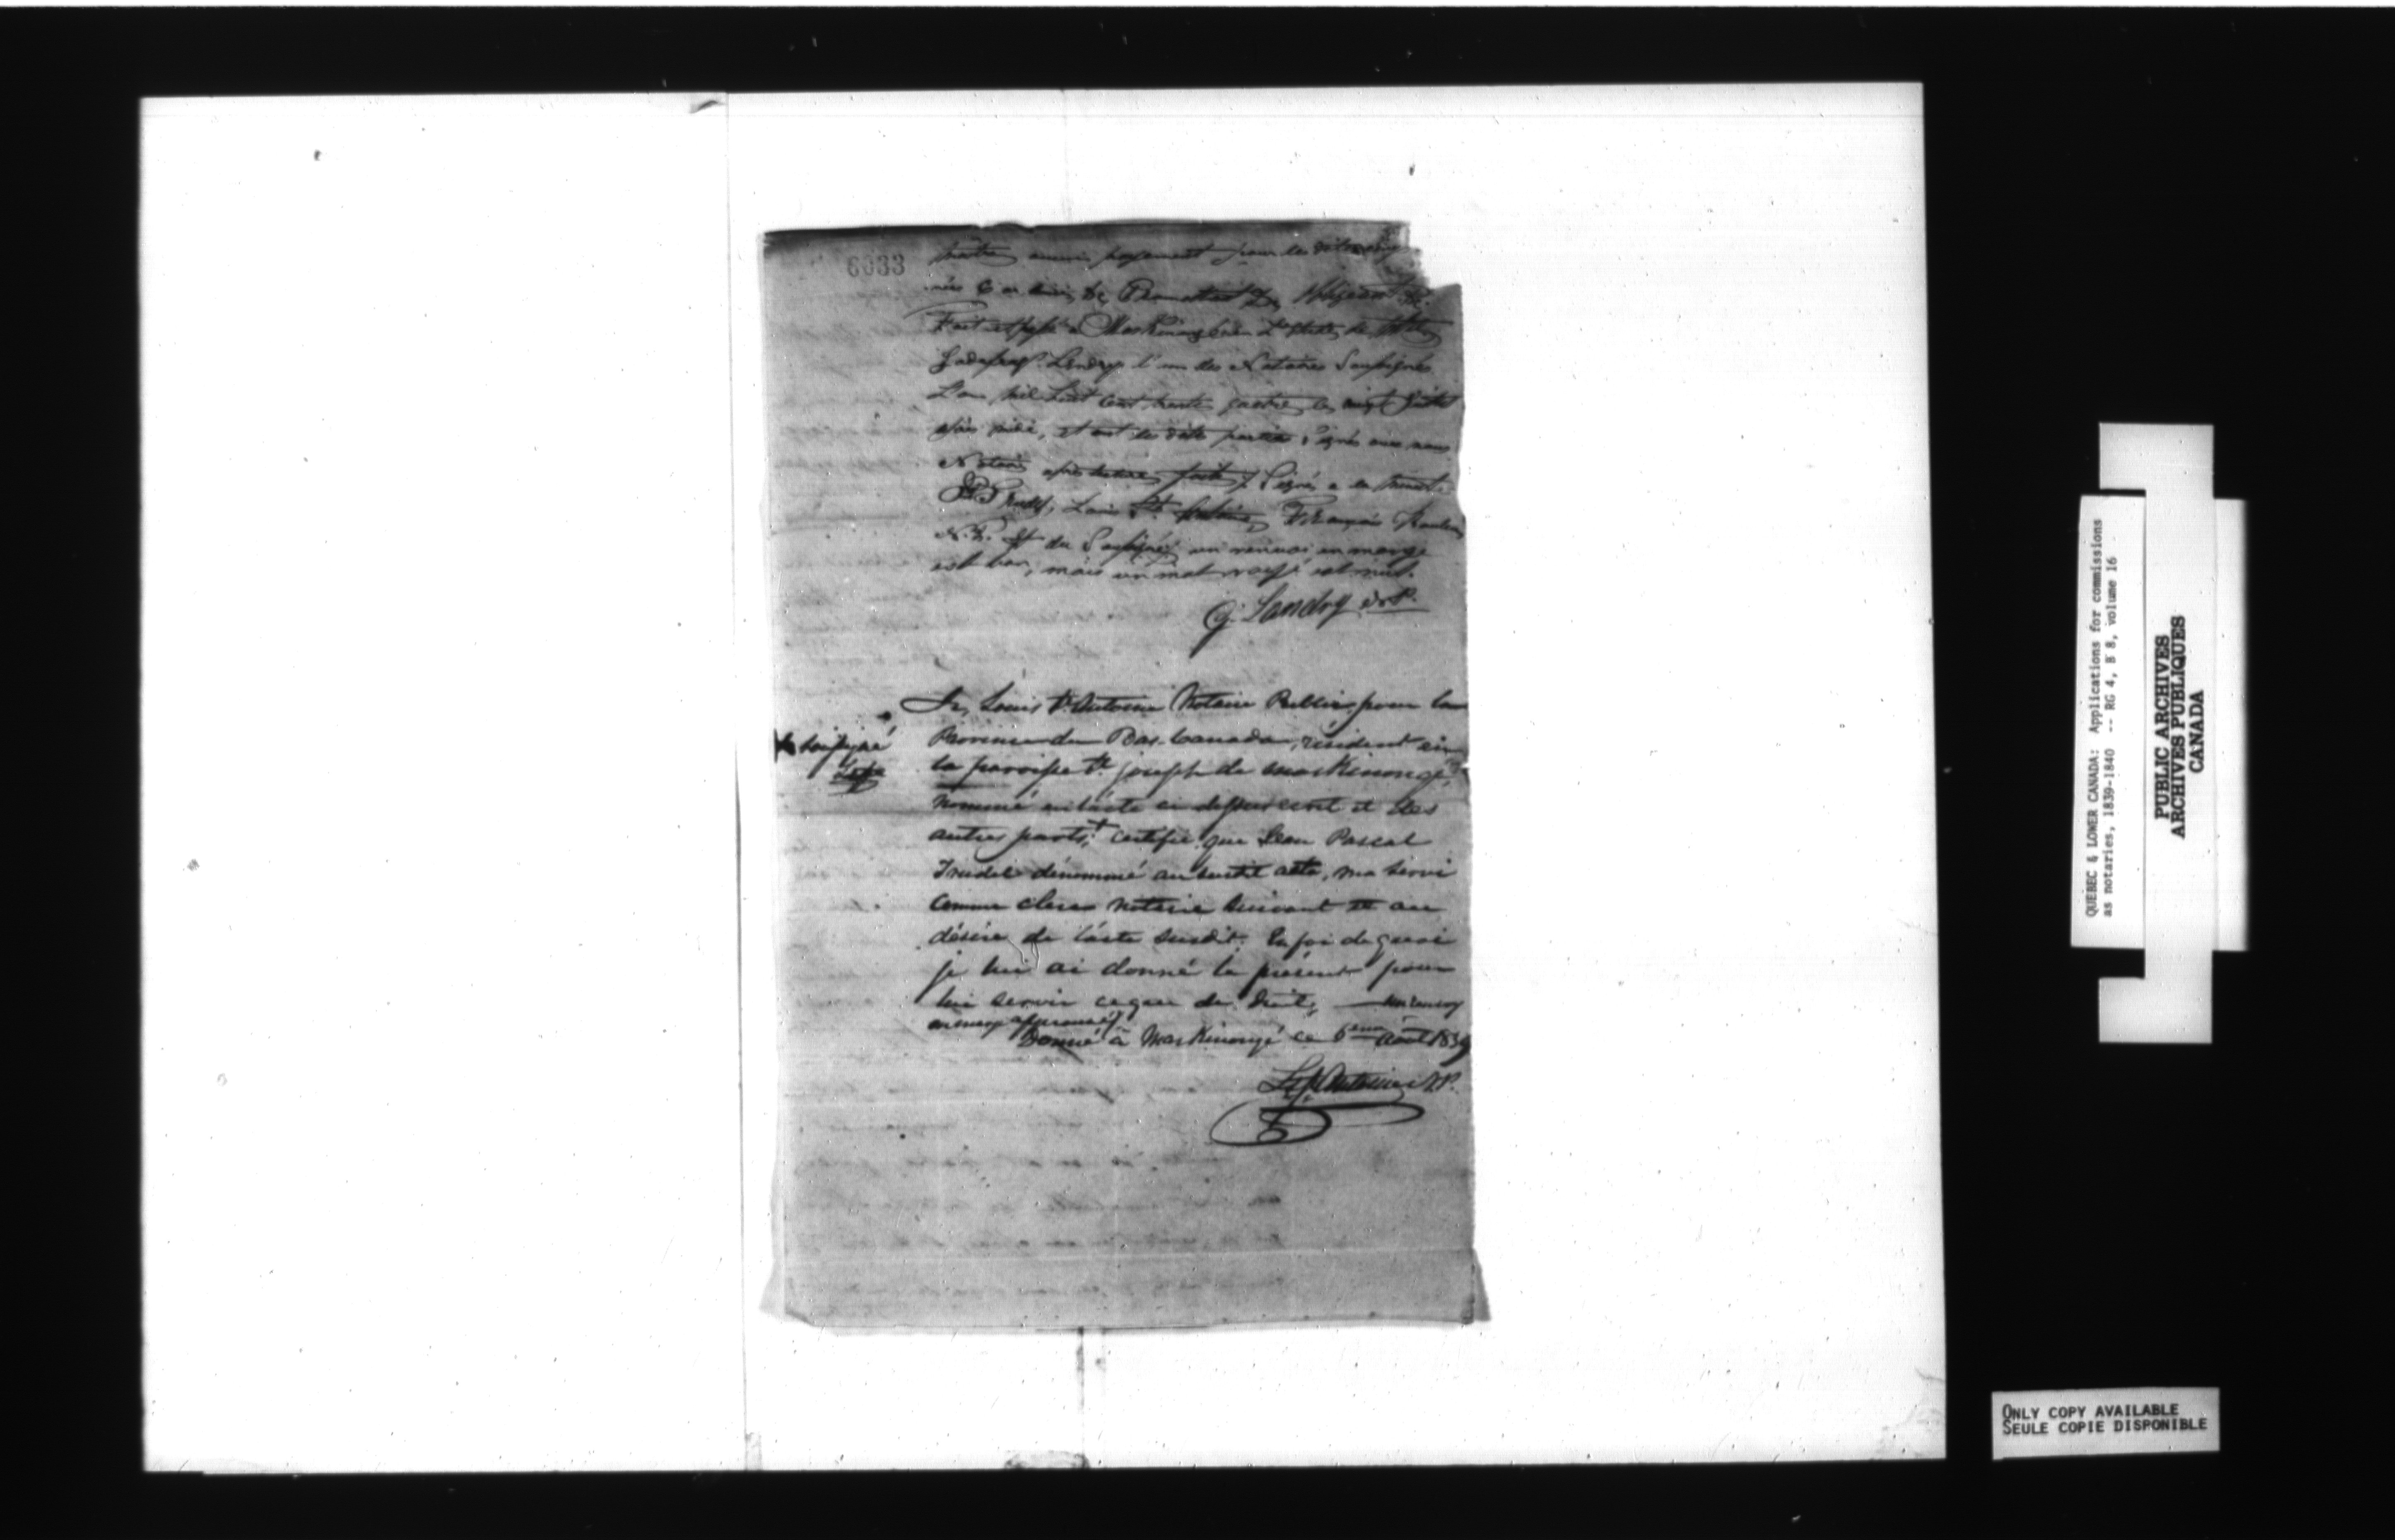 6033
aucun payement pour les
Promettant &c. Obligeant &c.
Fait et passé à Maskinongé en l'étude de
Godefroy Landry l'un des Notaires Soussignés
L'an mil huit cent trente quatre le vingt
après midi, et ont les dites parties signé avec nous
Notaires après lecture faite, Signé à la minute
Louis St. Antoine, François
N.P. et du Soussigné un renvoi en marge
est bon, mais un mot rayé est nul.
G. Landry N.P.
Je, Louis St. Antoine Notaire Public pour la
Province du Bas-Canada, résident en
la paroisse St. joseph de Maskinongé,
nommé en l'acte ci dessus écrit et des
autres parts, + certifie que Jean Pascal
Trudel dénommé au susdit acte, ma servi
comme clerc notarie suivant et au
désire de l'acte susdit. En foi de quoi
je lui ai donné le présent pour
lui servir ce que de droit, un renvoy
en marge approuvé
Donné à Maskinongé ce 6eme Août 1839
Ls St. Antoine N.P.
+ soussigné
QUEBEC & LOWER CANADA: Applications for commissions
as notaries, 1839-1840 -- RG 4, B 8, volume 16
PUBLIC ARCHIVES
ARCHIVES PUBLIQUES
CANADA
ONLY COPY AVAILABLE
SEULE COPIE DISPONIBLE